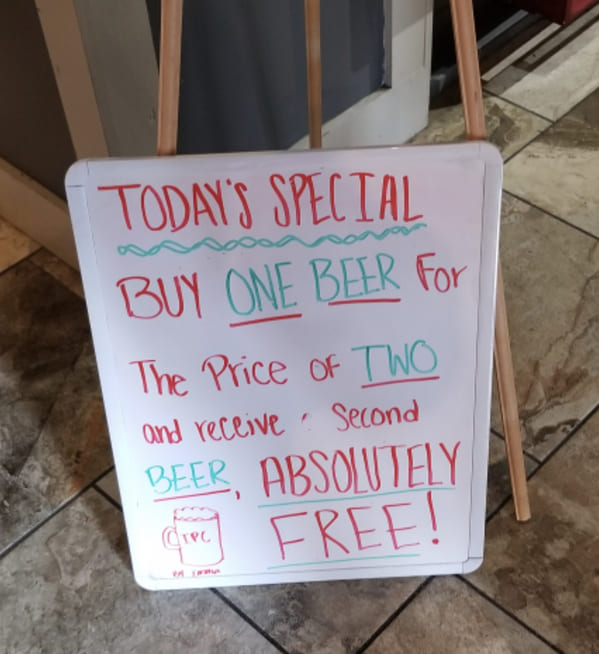 TODAY'S SPECIAL
BUY ONE BEER For
The Price of TWO
and receive a Second
BEER, ABSOLUTELY
FREE!
TPC